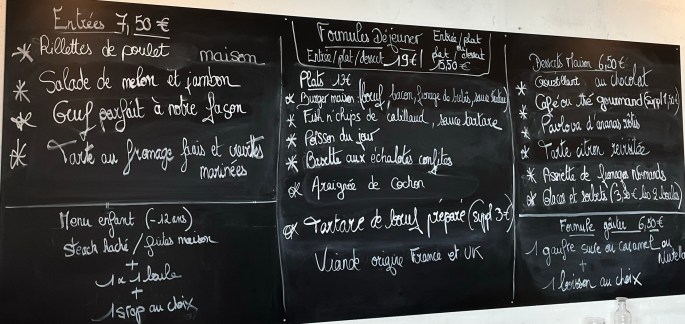 Entrées 7,50 €
* Rillettes de poulet maison
* Salade de melon et jambon
* Oeuf parfait à notre façon
* Tarte au fromage frais et carottes
marinées
Menu enfant (-12 ans)
Steack haché / frites maison
+
1 x 1 boule
+
1 sirop au choix
Formules Déjeuner
Entrée/plat/dessert 19 €
Entrée/plat
ou
plat/dessert
15,50 €
Plats 13 €
* Burger maison (boeuf, bacon, fromage de brebis, sauce
* Fish n'chips de cabillaud, sauce tartare
* Poisson du jour
* Bavette aux échalotes confites
* Araignée de cochon
* Tartare de boeuf préparé (suppl 3 €)
Viande origine France et UK
Desserts Maison 6,50 €
* au chocolat
* Café ou thé gourmand (suppl
* Pavlova d'ananas rôtis
* Tarte citron revisitée
* Assiette de fromages normands
* Glaces et sorbets (3,50 € les 2 boules)
Formule goûter 6,50 €
1 gaufre sucre ou caramel ou
Nutella
+
1 boisson au choix